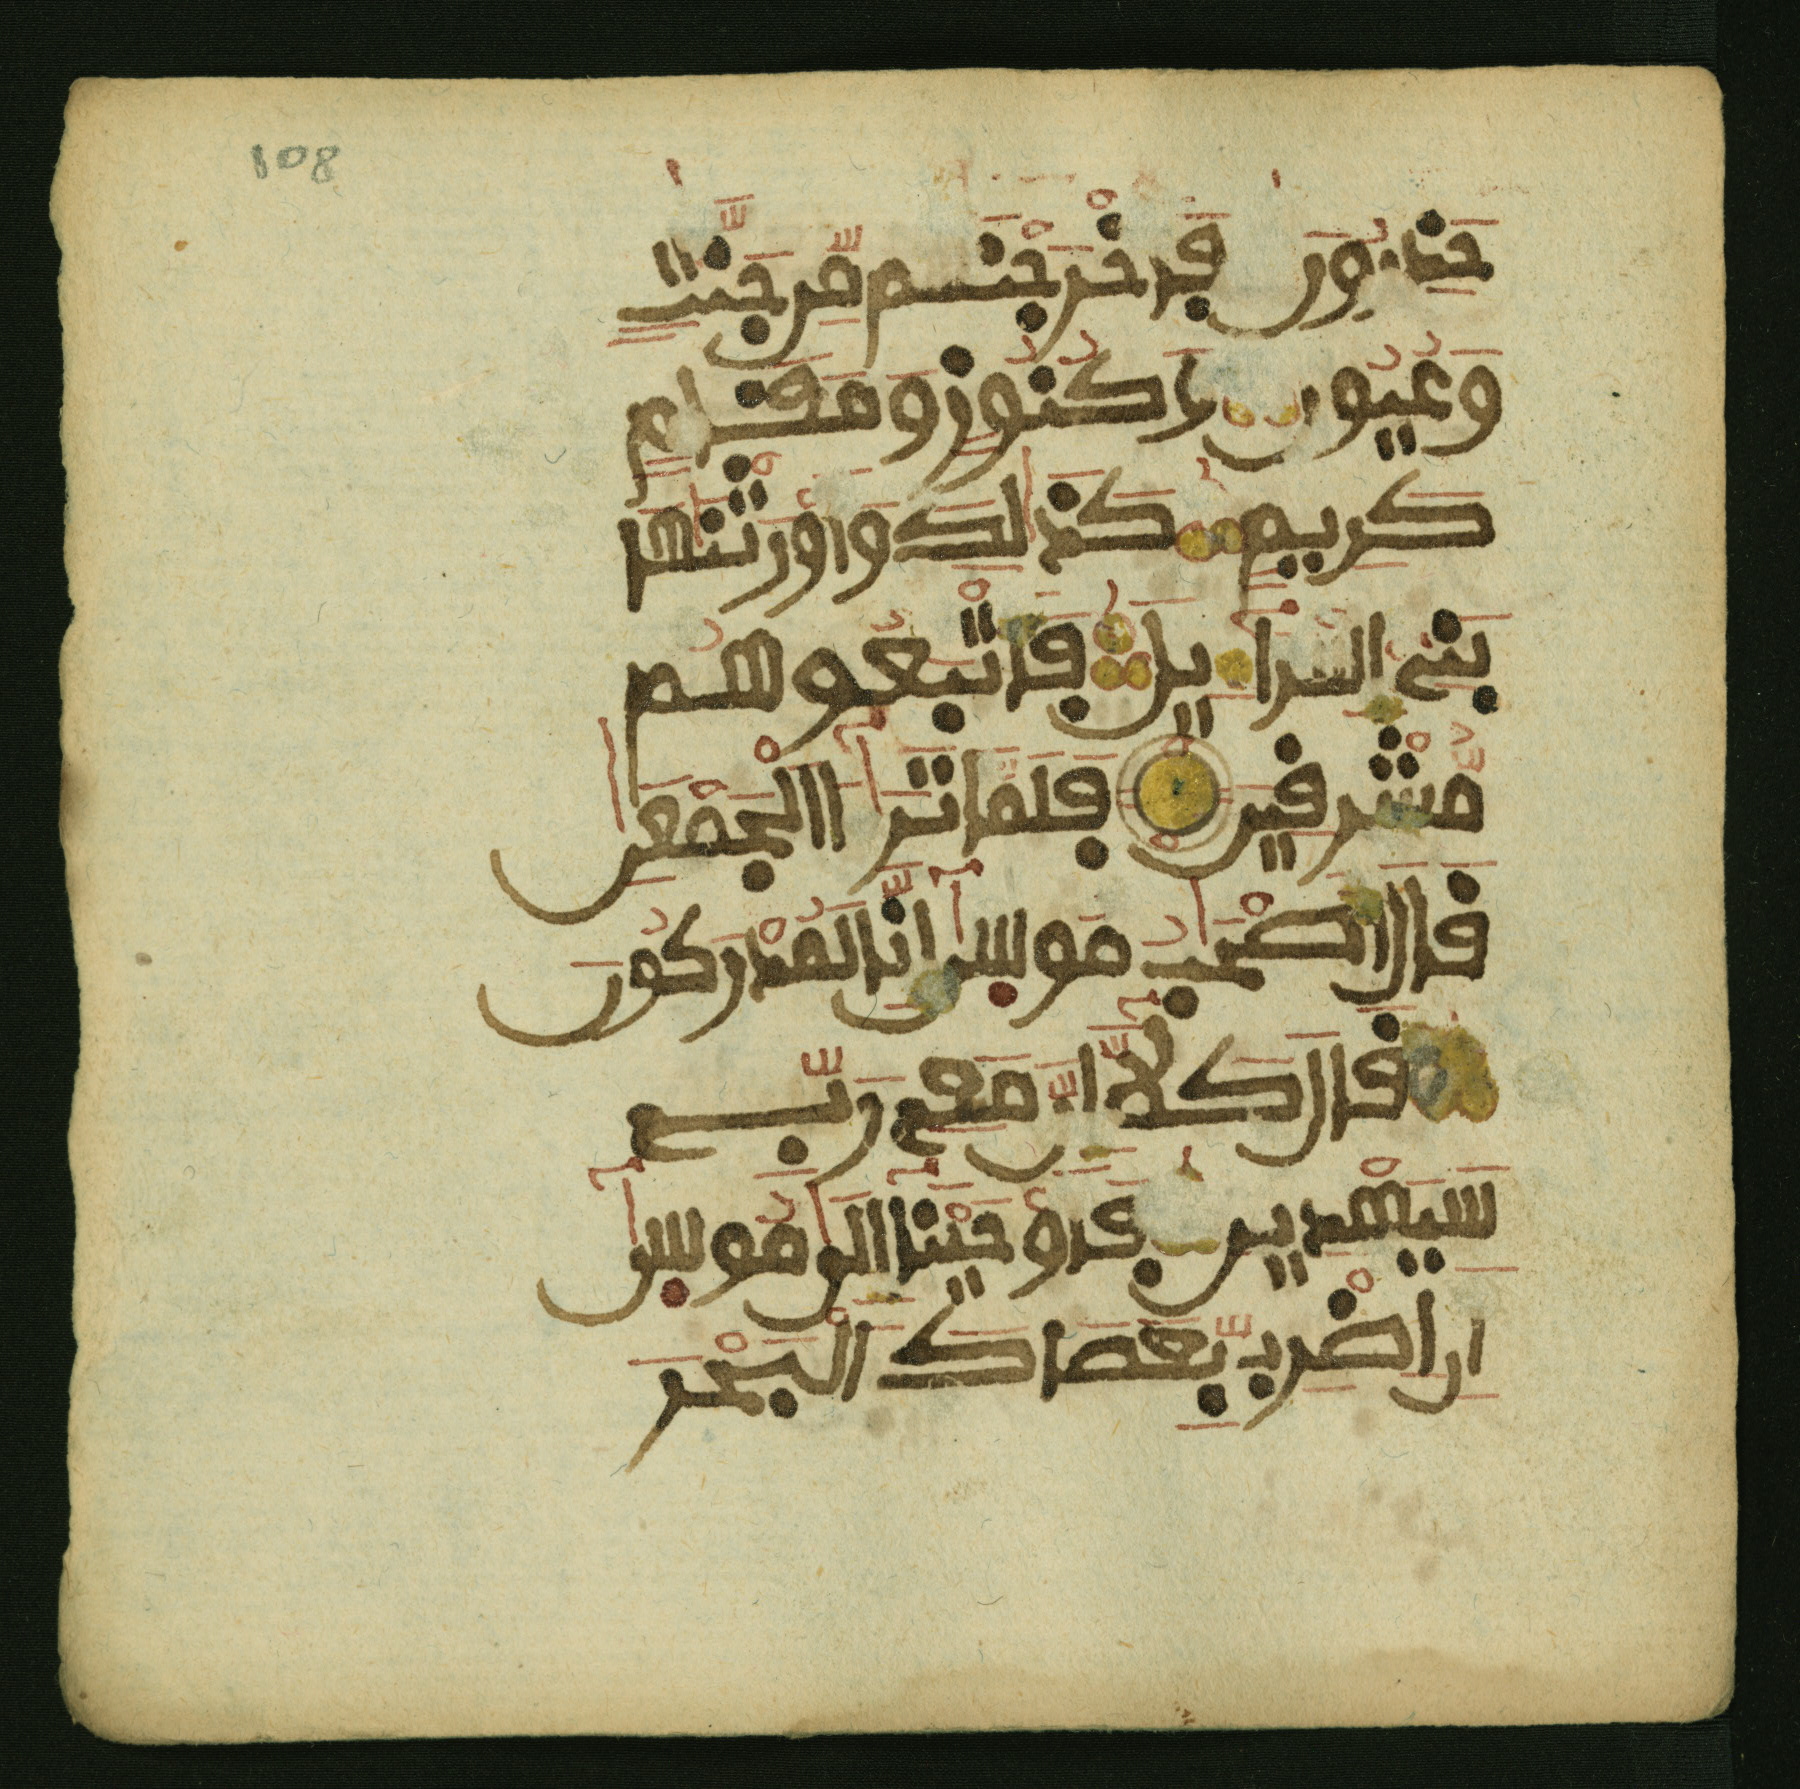 108
حَٰذِرُونَ فَأَخْرَجْنَٰهُم مِّن جَنَّٰتٍ
وَعُيُونٍ وَكُنُوزٍ وَمَقَامٍ
كَرِيمٍ كَذَٰلِكَ وَأَوْرَثْنَٰهَا
بَنِي إِسْرَآءِيلَ فَأَتْبَعُوهُم
مُّشْرِقِينَ فَلَمَّا تَرَٰٓءَا اَلْجَمْعَٰنِ
قَالَ أَصْحَٰبُ مُوسَىٰٓ إِنَّا لَمُدْرَكُونَ
قَالَ كَلَّآ إِنَّ مَعِي رَبِّي
سَيَهْدِينِ فَأَوْحَيْنَآ إِلَىٰ مُوسَىٰٓ
أَنِ اِضْرِب بِّعَصَاكَ اَلْبَحْرَ